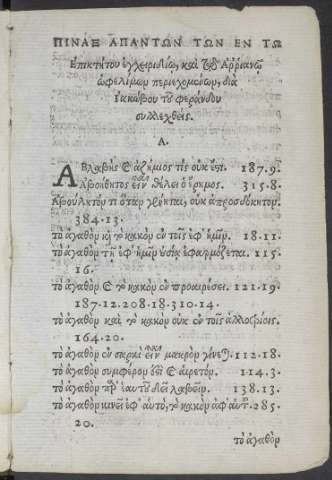 ΠΙΝΑΞ ΑΠΑΝΤΩΝ ΤΩΝ ΕΝ ΤΩ
Ἐπικτήτου ἐγχειριδίῳ, καὶ τῷ Ἀρριανῷ
ὠφελίμων περιεχομένων, διὰ
ἰακώβου τοῦ φεράνδου
συλλεχθείς.
Α.
ΑΒλαβὴς & ἀζήμιος τίς οὐκ ἔστι. 187.9.
Ἀβοήθητος θέλει ὁ ἔρημος. 315.8.
Ἀβουλητόν τι ὅταν γένηται, οὐκ ἀπροσδόκητον.
384.13.
τὸ ἀγαθὸν καὶ κακὸν ἐν τοῖς ἐφ' ἡμῖν. 18.11.
τὸ ἀγαθὸν τῇ ἐφ' ἡμῖν ἐφαρμόζεται. 115.
16.
τὸ ἀγαθὸν & τὸ κακὸν ἐν προαιρέσει. 121.19.
187.12.208.18.310.14.
τὸ ἀγαθὸν καὶ τὸ κακὸν οὐκ ἐν τοῖς ἀλλοτρίοις.
164.20.
τὸ ἀγαθὸν ἐν σαρκὶ μακρὸν 112.18.
τὸ ἀγαθὸν συμφέρον & αἱρετόν. 114.3.
τὸ ἀγαθὸν παρ' ἑαυτοῦ δεῖ λαβεῖν. 138.13.
τὸ ἀγαθὸν κινεῖ ἐφ' αὑτὸ, τὸ κακὸν ἀφ' αὑτοῦ. 285.
20.
τὸ ἀγαθὸν